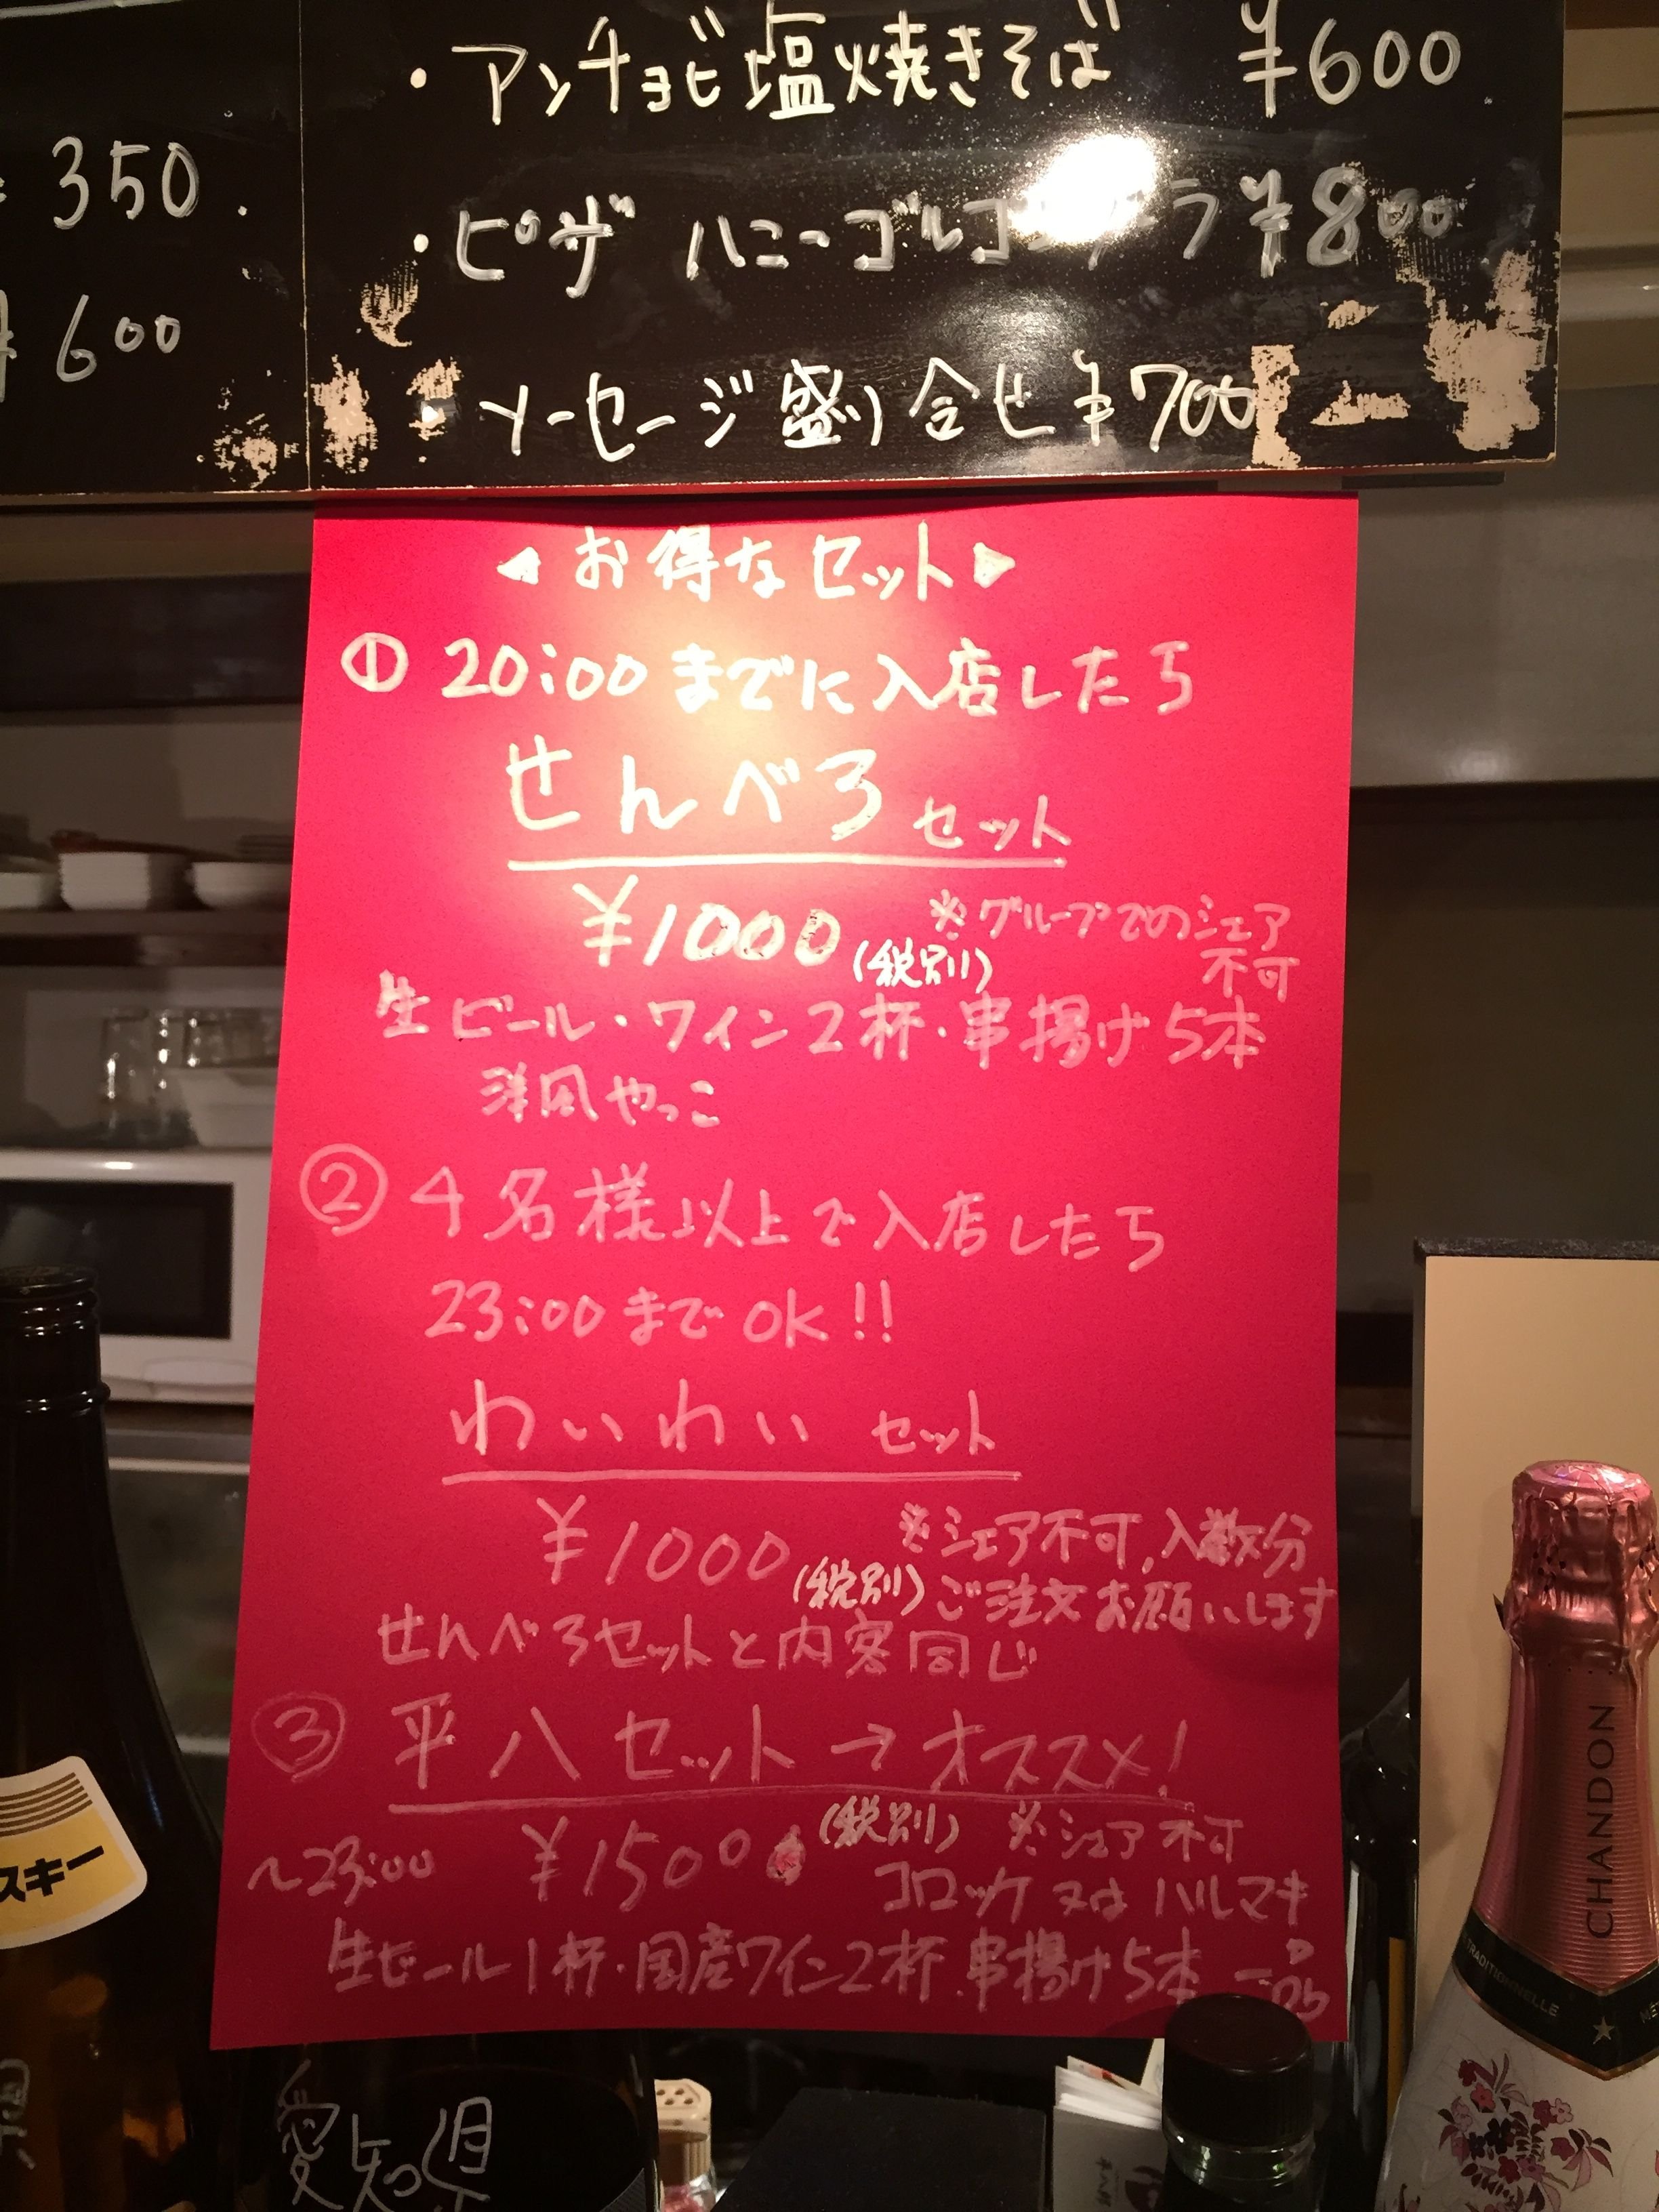 ・アンチョビ塩焼きそば ¥600
350
・ピザ ハニーゴルゴンゾーラ ¥800
¥600
・ソーセージ盛り合せ ¥700
◀お得なセット▶
① 20:00までに入店したら
せんべろセット
¥1000 (税別)
※グループでのシェア
不可
生ビール・ワイン2杯・串揚げ5本
洋風やっこ
② 4名様以上で入店したら
23:00までOK!!
わいわいセット
¥1000 (税別)
※シェア不可,人数分
ご注文お願いします
せんべろセットと内容同じ
③ 平八セット→オススメ!
~23:00 ¥1500 (税別) ※シェア不可
コロッケ又はハルマキ
生ビール1杯・国産ワイン2杯.串揚げ5本
スキー
CHANDON
TRADITIONNELLE
愛知県